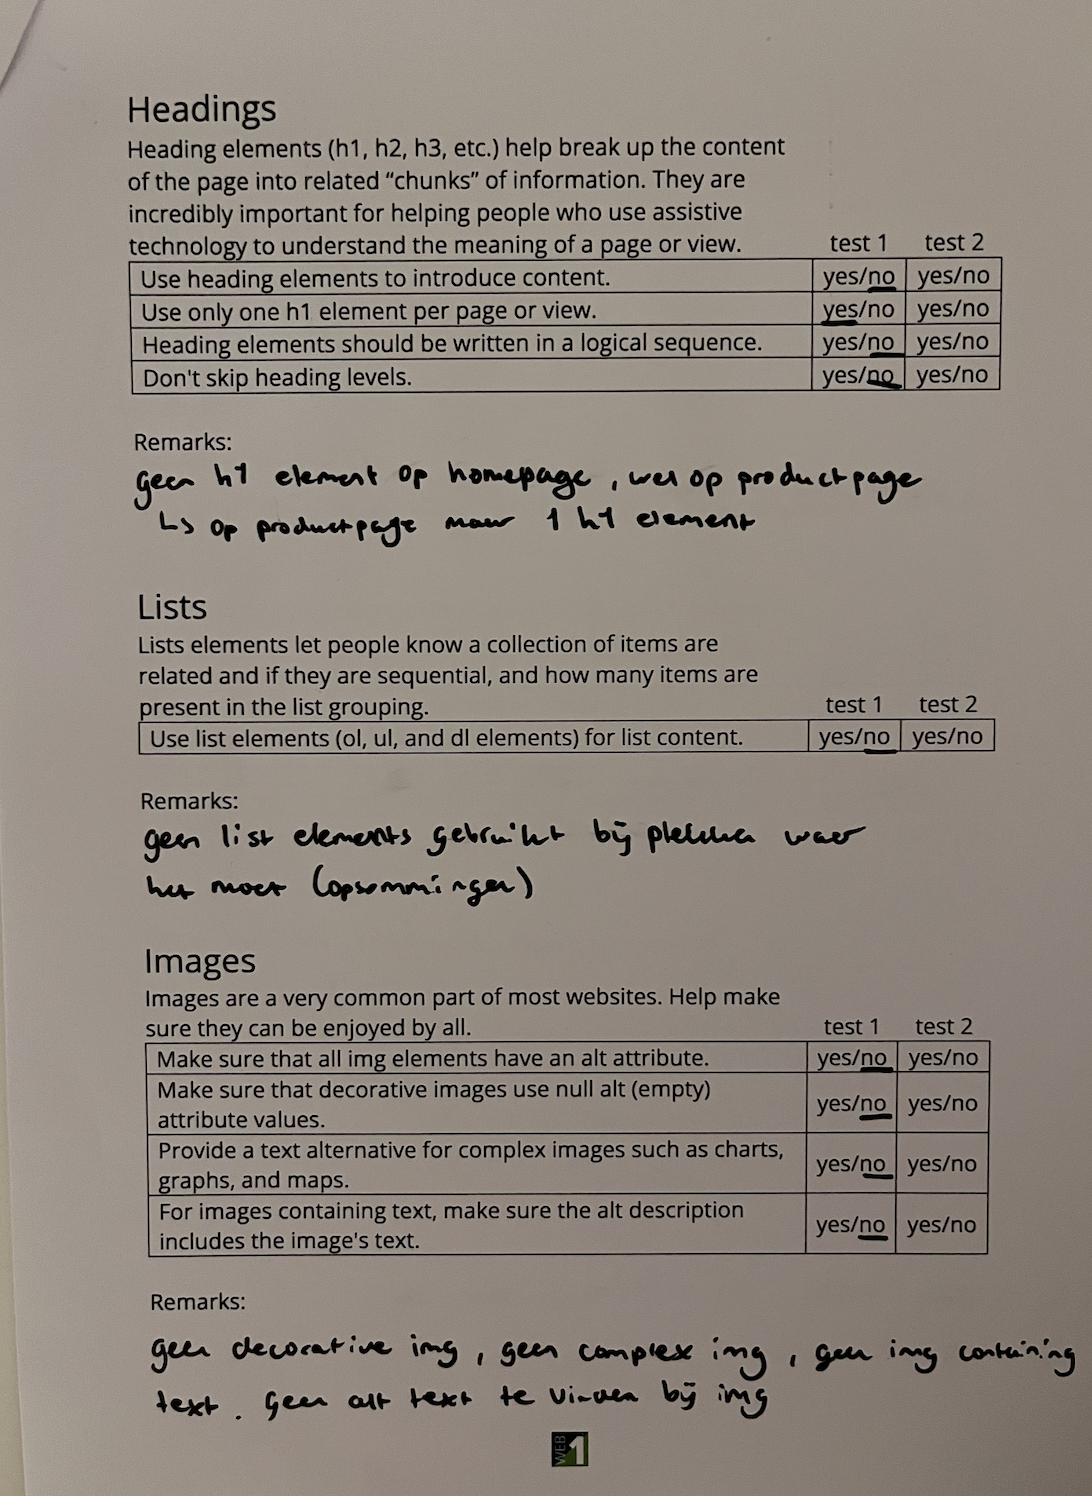 Headings
Heading elements (h1, h2, h3, etc.) help break up the content
of the page into related “chunks” of information. They are
incredibly important for helping people who use assistive
technology to understand the meaning of a page or view. test 1 test 2
Use heading elements to introduce content. yes/no yes/no
Use only one h1 element per page or view. yes/no yes/no
Heading elements should be written in a logical sequence. yes/no yes/no
Don't skip heading levels. yes/no yes/no
Remarks:
geen h1 element op homepage, wel op productpage
↳ op productpage maar 1 h1 element
Lists
Lists elements let people know a collection of items are
related and if they are sequential, and how many items are
present in the list grouping. test 1 test 2
Use list elements (ol, ul, and dl elements) for list content. yes/no yes/no
Remarks:
geen list elements gebruikt bij plekken waar
het moet (opsommingen)
Images
Images are a very common part of most websites. Help make
sure they can be enjoyed by all. test 1 test 2
Make sure that all img elements have an alt attribute. yes/no yes/no
Make sure that decorative images use null alt (empty)
attribute values. yes/no yes/no
Provide a text alternative for complex images such as charts,
graphs, and maps. yes/no yes/no
For images containing text, make sure the alt description
includes the image's text. yes/no yes/no
Remarks:
geen decorative img, geen complex img, geen img containing
text. Geen alt text te vinden bij img
WEB 1